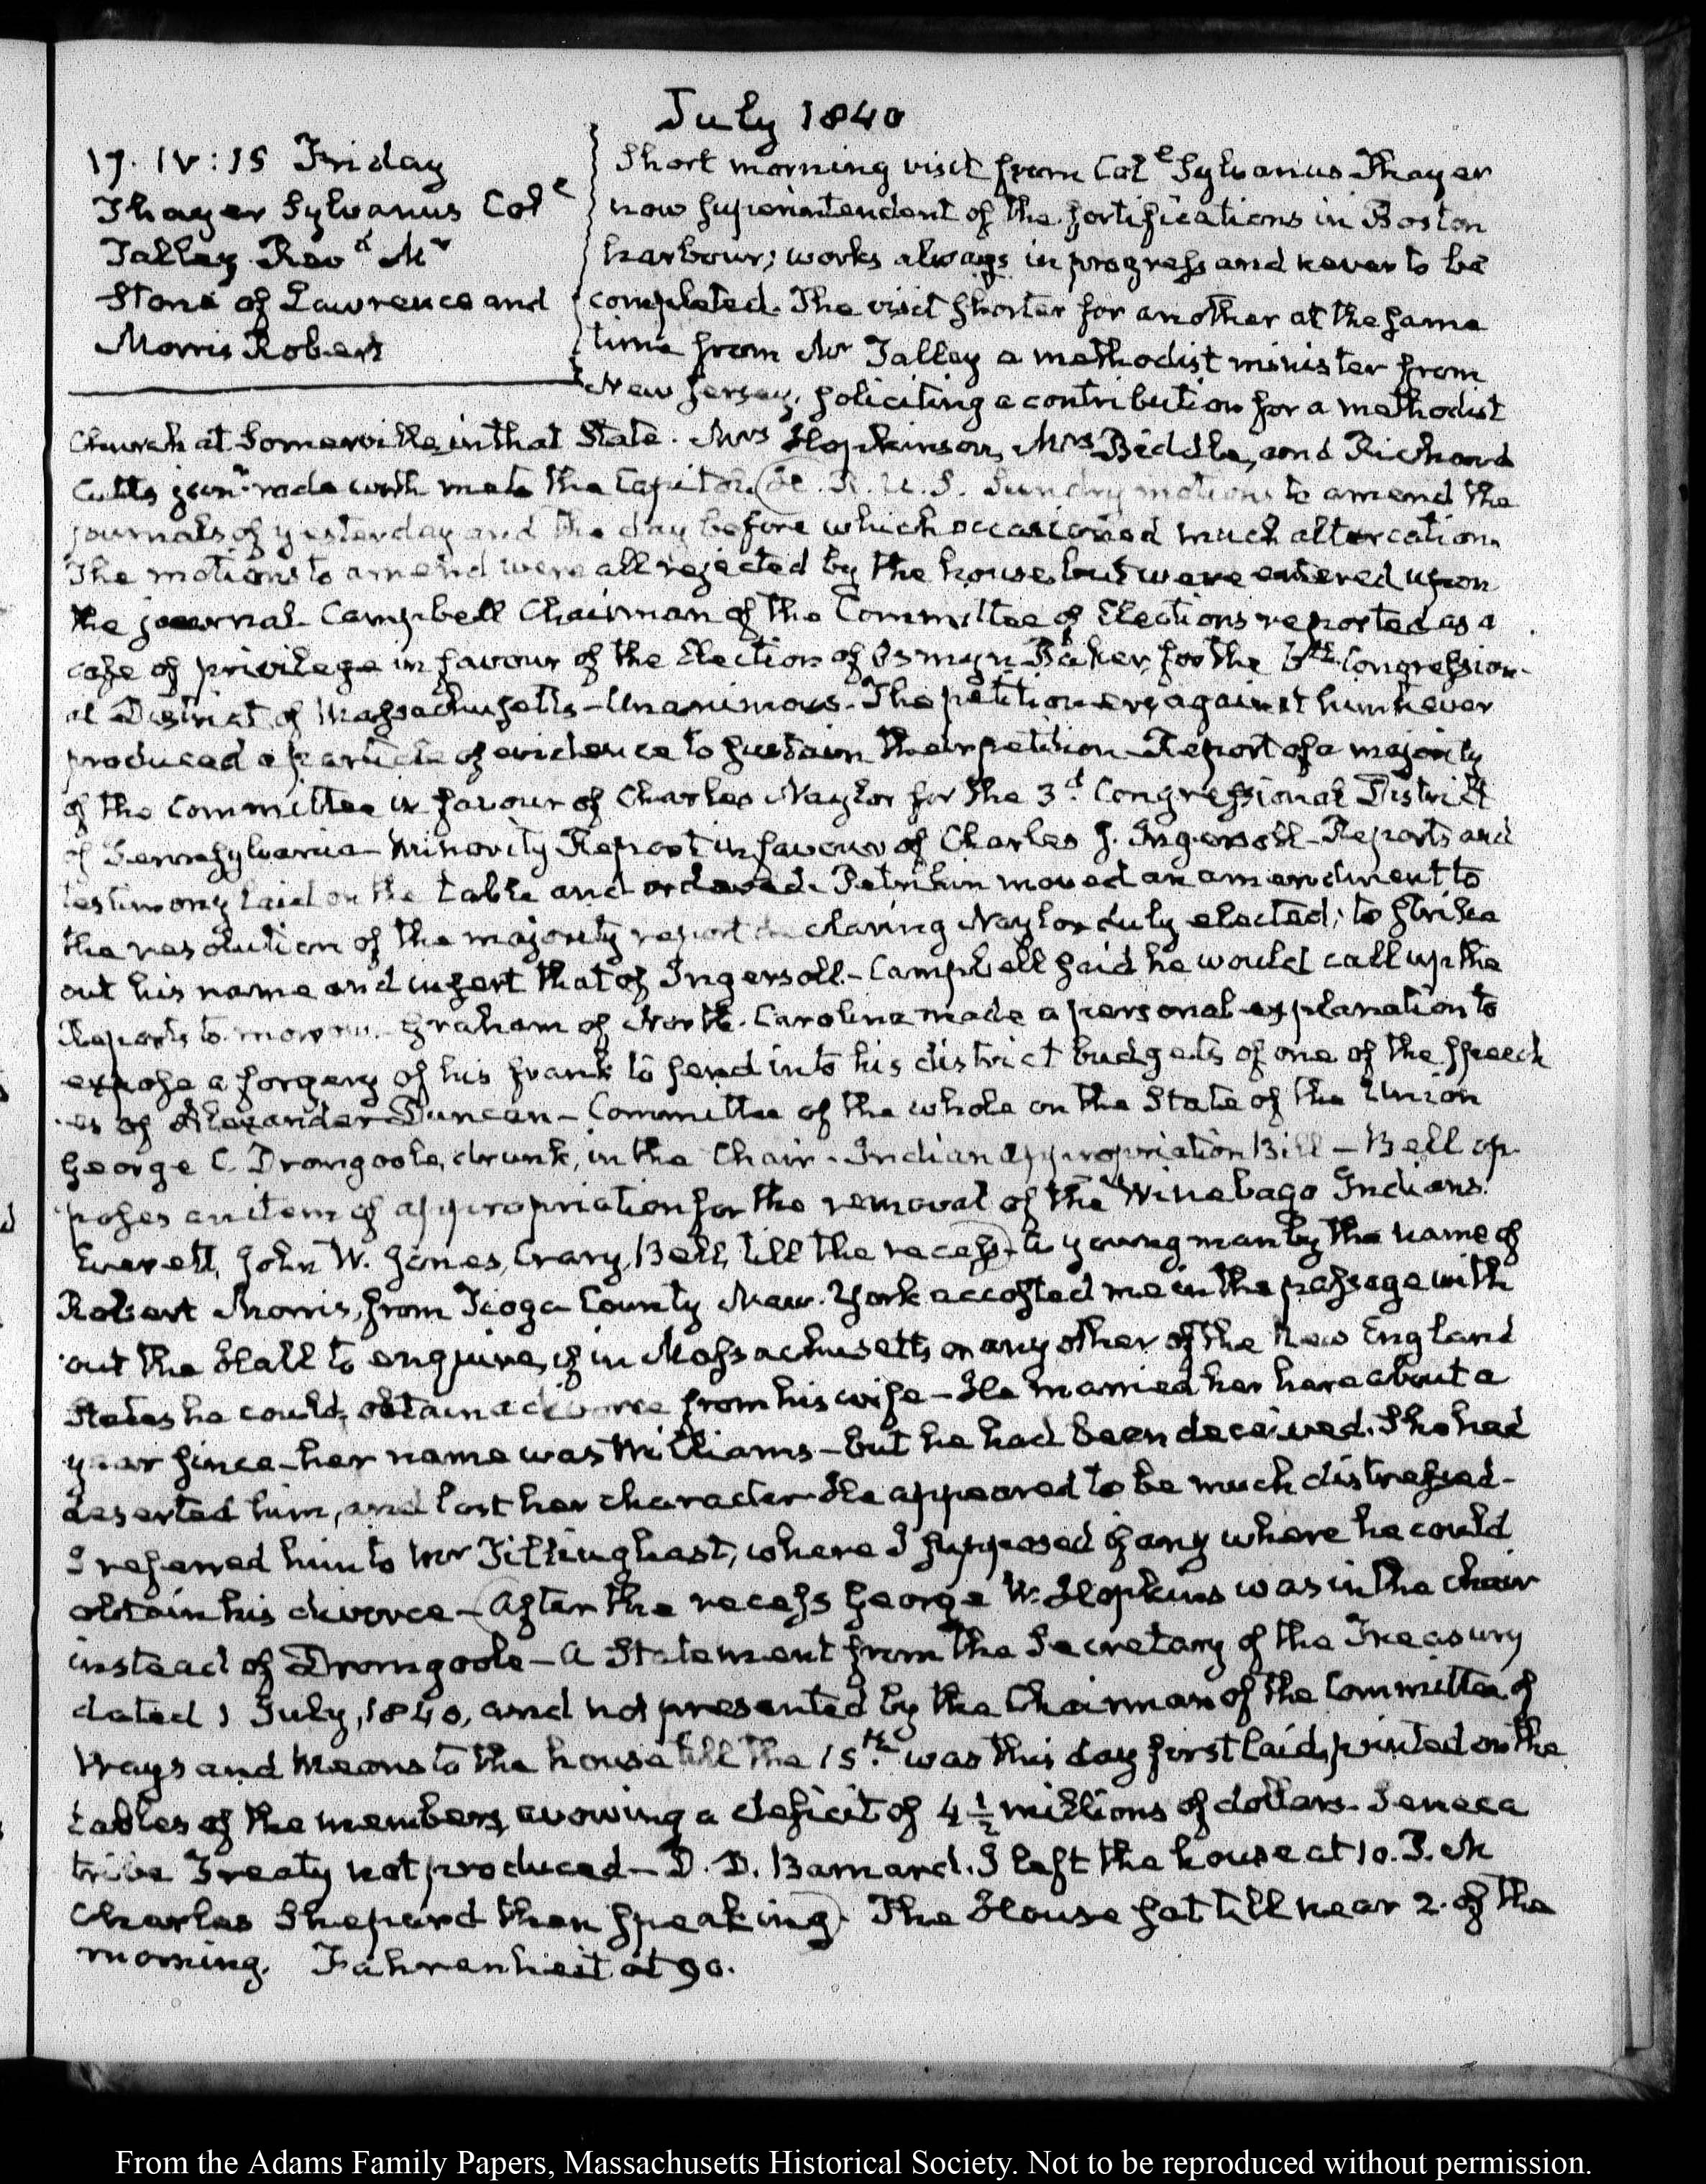 July 1840
17. IV:15 Friday
Thayer Sylvanus Col.e
Talley Revd Mr
Stone of Lawrence and
Morris Robert
Short morning visit from Col.e Sylvanus Thayer
now superintendent of the fortifications in Boston
harbour; works always in progress and never to be
completed. The visit shorter for another at the same
time from Mr Talley a methodist minister from
New Jersey, soliciting a contribution for a methodist
Church at Somerville in that State. Mrs Hopkinson, Mrs Biddle, and Richard
Cutts junr. rode with me to the Capitol. H. R. U. S. Sundry motions to amend the
journals of yesterday and the day before which occasioned much altercation.
The motions to amend were all rejected by the house, but were entered upon
the journal. Campbell Chairman of the Committee of Elections reported as a
case of privilege in favour of the Election of Osmyn Baker, for the Congression-
al District of Massachusetts—Unanimous. The petitioners against him never
produced a particle of evidence to sustain their petition—Report of a majority
of the Committee in favour of Charles Naylor for the 3d. Congressional District
of Pennsylvania—Minority Report in favour of Charles J. Ingersoll—Reports and
testimony laid on the table and ordered. Petrikin moved an amendment to
the resolution of the majority report declaring Naylor duly elected; to strike
out his name and insert that of Ingersoll—Campbell said he would call up the
Reports to-morrow. Graham of North-Carolina made a personal explanation to
expose a forgery of his frank to send into his district budgets of one of the speech
es of Alexander Duncan—Committee of the whole on the State of the Union
George C. Dromgoole, drunk, in the Chair—Indian appropriation Bill—Bell op-
poses an item of appropriation for the removal of the Winebago Indians.
Everett, John W. Jones, Crary, Bell, till the recess. A young man by the name of
Robert Morris, from Tioga County New-York accosted me in the passage with
out the Hall to enquire, if in Massachusetts or any other of the New England
States he could obtain a divorce from his wife—He married her here about a
year since—her name was Williams—but he had been deceived. She had
deserted him, and lost her character—He appeared to be much distressed—
I referred him to Mr Tillinghast, where I supposed if any where he could
obtain his divorce—After the recess George W. Hopkins was in the chair
instead of Dromgoole—A Statement from the Secretary of the Treasury
dated 1 July, 1840, and not presented by the Chairman of the Committee of
Ways and Means to the house till the 15th. was this day first laid, printed on the
tables of the members, avowing a deficit of 4 1/2 millions of dollars. Seneca
tribe Treaty not produced—D. D. Barnard. I left the house at 10. P. M
Charles Shepard then speaking. The House sat till near 2. of the
morning. Fahrenheit at 90.
From the Adams Family Papers, Massachusetts Historical Society. Not to be reproduced without permission.